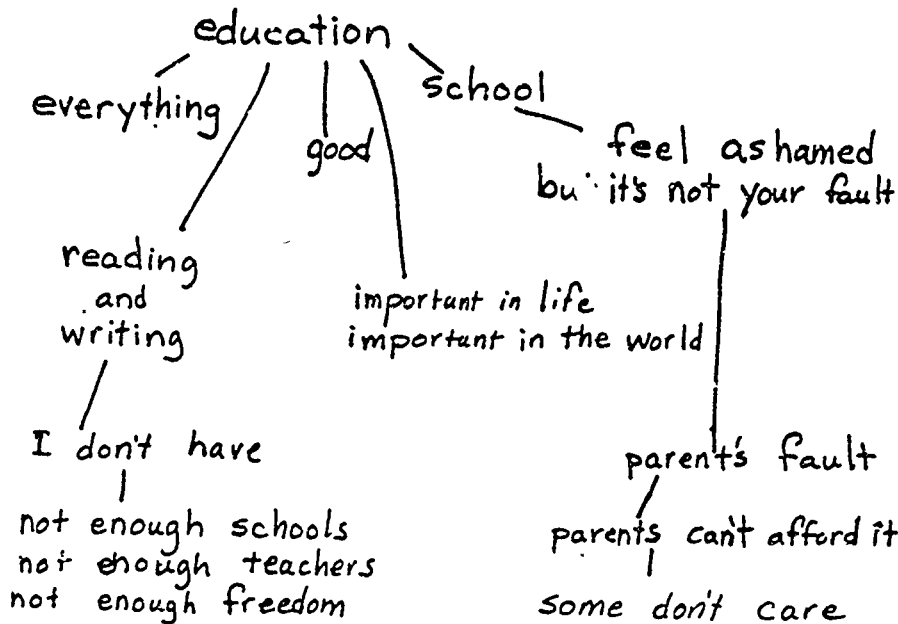 education
everything
school
good
feel ashamed
bu it's not your fault
reading
and
writing
important in life
important in the world
I don't have
parent's fault
not enough schools
not enough teachers
not enough freedom
parents can't afford it
some don't care